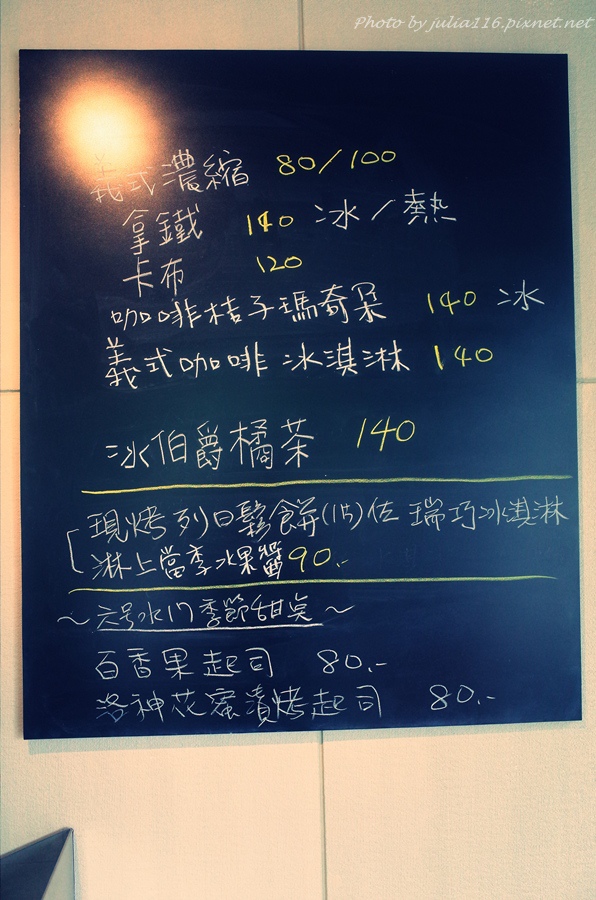 Photo by julia116.pixnet.net
義式濃縮 80/100
拿鐵 140 冰/熱
卡布 120
咖啡桔子瑪奇朵 140 冰
義式咖啡 冰淇淋 140
冰伯爵橘茶 140
現烤列日鬆餅(1片)佐 瑞巧冰淇淋
淋上當季水果醬90.-
~六号水门 季節甜点~
百香果起司 80.-
洛神花蜜漬烤起司 80.-